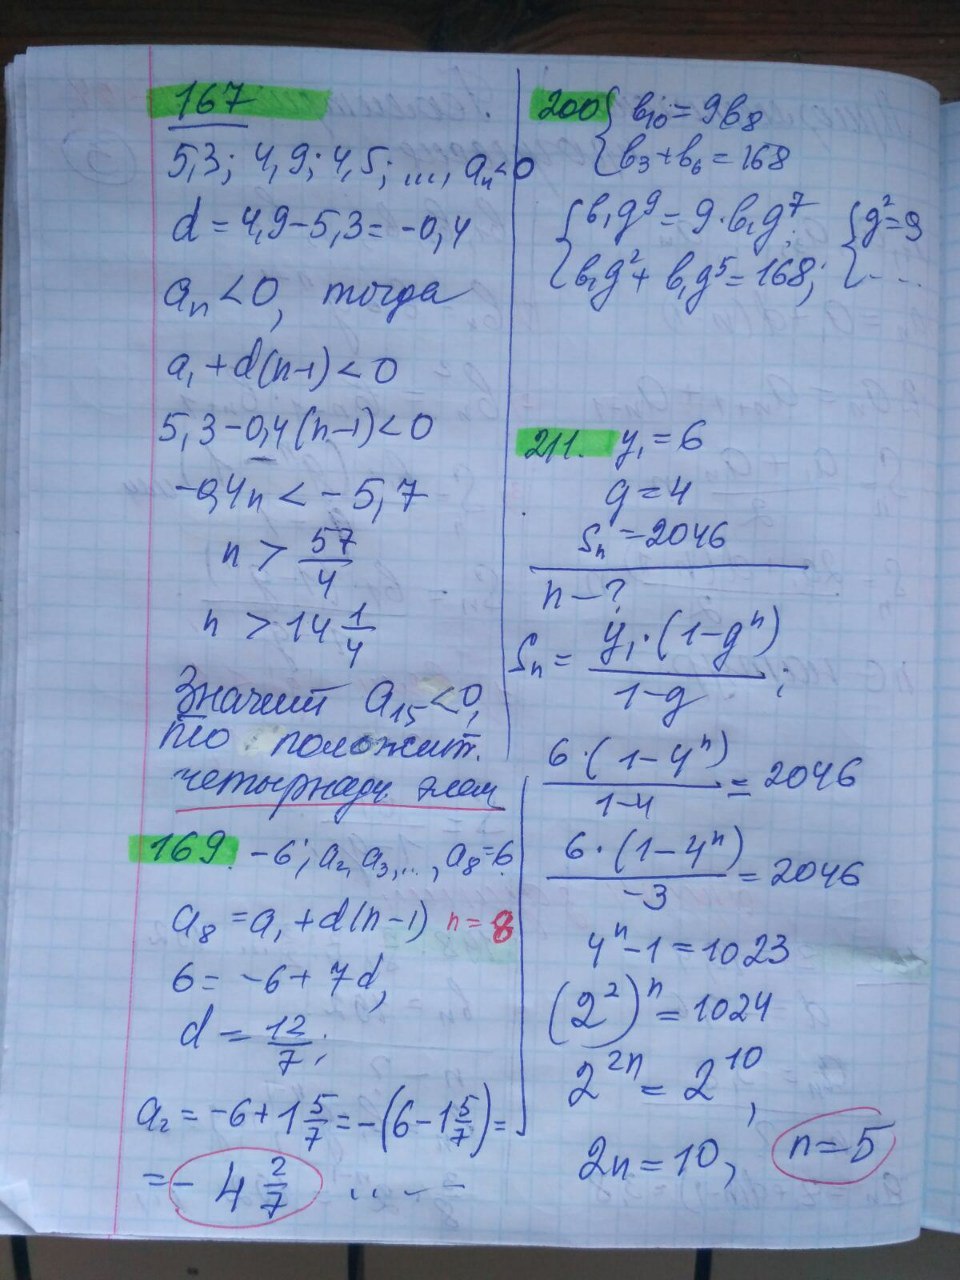 167
5,3; 4,9; 4,5; ..., aₙ<0
d = 4,9-5,3= -0,4
aₙ <0, тогда
a₁ + d(n-1) < 0
5,3-0,4(n-1)<0
-0,4n < -5,7
n > 57/4
n > 14 1/4
Значит a₁₅ <0,
то положит.
четырнадц. элем
169. -6; a₂, a₃,..., a₈=6
a₈ = a₁ + d(n-1) n = 8
6 = -6 + 7d,
d = 12/7;
a₂ = -6+1 5/7 = -(6-1 5/7) =
= - 4 2/7 ...--
200 { b₁₀ = 9b₈
{ b₃+b₆ = 168
{ b₁g⁹ = 9·b₁g⁷; { g²=9
{ b₁g²+ b₁g⁵ = 168; { - ...
211. y₁ = 6
g = 4
Sₙ = 2046
n - ?
Sₙ = y₁·(1-gⁿ)/1-g;
6·(1-4ⁿ)/1-4 = 2046
6·(1-4ⁿ)/-3 = 2046
4ⁿ-1 = 1023
(2²)ⁿ = 1024
2²ⁿ = 2¹⁰,
2n = 10, n = 5